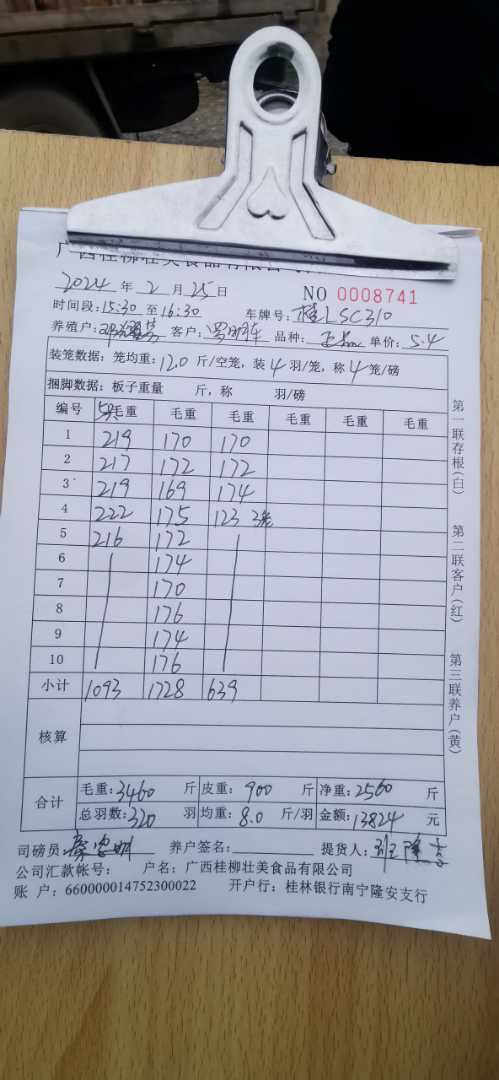 广西桂柳壮美食品有限公司
2024 年 2 月 25 日 NO 0008741
时间段: 15:30 至 16:30 车牌号: 桂LSC310
养殖户: 客户: 品种: 单价: 5.4
装笼数据: 笼均重: 12.0 斤/空笼, 装 4 羽/笼, 称 4 笼/磅
捆脚数据: 板子重量 斤, 称 羽/磅
编号 5只毛重 毛重 毛重 毛重 毛重 毛重
1 219 170 170
2 217 172 172
3 219 169 174
4 222 175 123 3笼
5 216 172
6 174
7 170
8 176
9 174
10 176
小计 1093 1728 639
核算
合计 毛重: 3460 斤 皮重: 900 斤 净重: 2560 斤
总羽数: 320 羽 均重: 8.0 斤/羽 金额: 13824 元
司磅员: 养户签名: 提货人:
公司汇款帐号: 户名: 广西桂柳壮美食品有限公司
账 户: 660000014752300022 开户行: 桂林银行南宁隆安支行
第一联存根(白)
第二联客户(红)
第三联养户(黄)